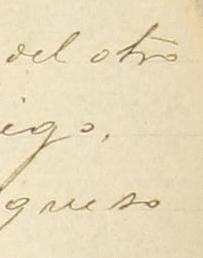 del otro
igo,
queso